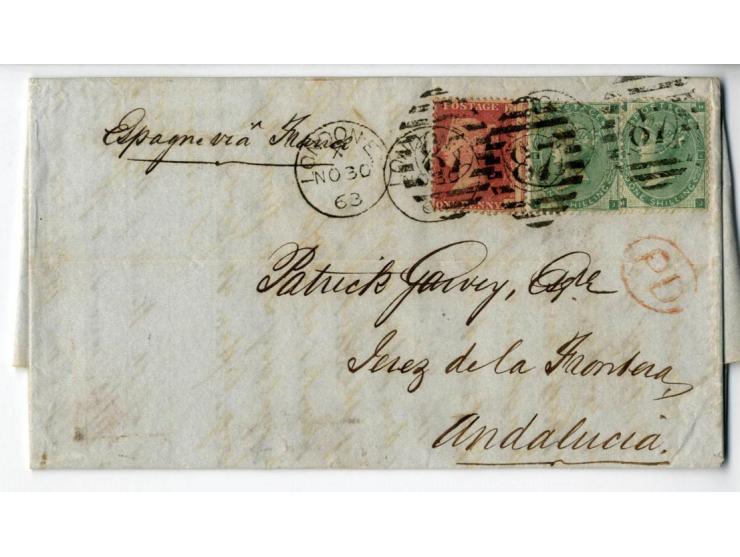 Espagne via France
LONDON E
X
NO 30
63
POSTAGE
ONE PENNY
87
87
87
ONE SHILLING
ONE SHILLING
PD
Patrick Garvey, Esqre
Jerez de la Frontera,
Andalucia.